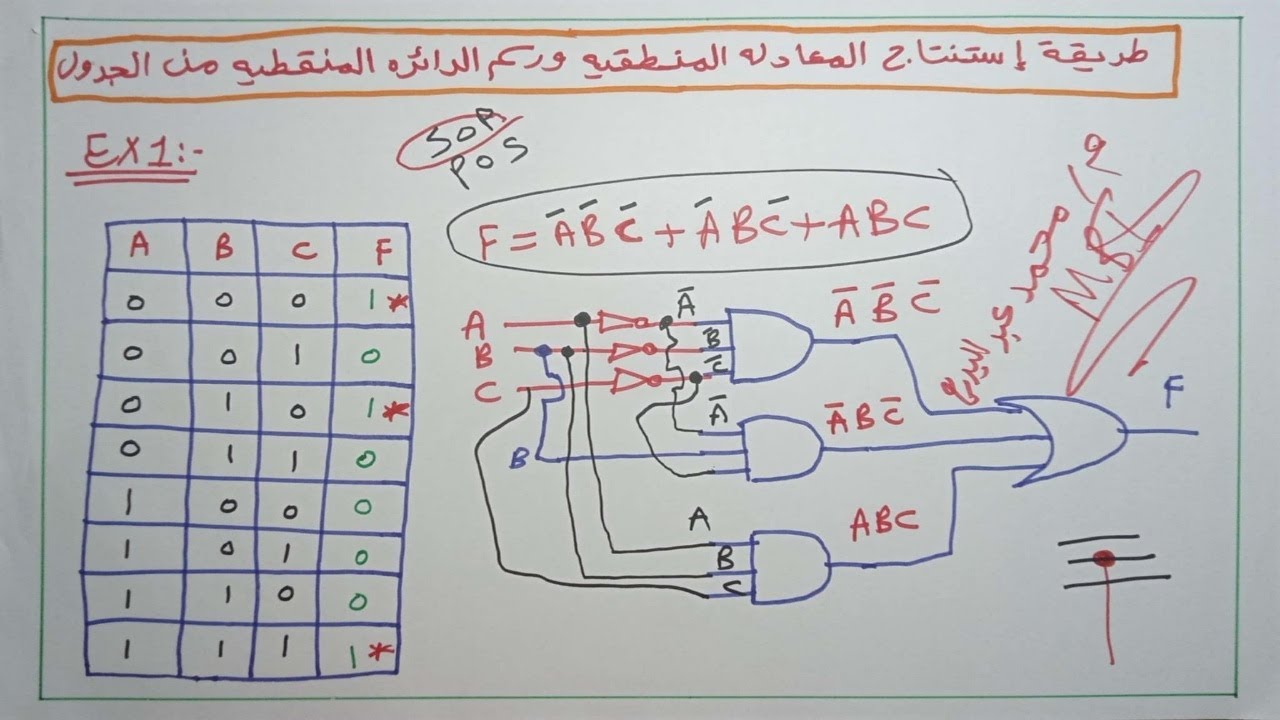 طريقة إستنتاج المعادله المنطقيه ورسم الدائره المنقطيه من الجدول
EX1:-
SOP
POS
F = A̅ B̅ C̅ + A̅ B C̅ + A B C
A B C F
0 0 0 1*
0 0 1 0
0 1 0 1*
0 1 1 0
1 0 0 0
1 0 1 0
1 1 0 0
1 1 1 1*
A
B
C
A̅
B̅
C̅
A̅ B̅ C̅
A̅
B
A̅ B C̅
A
B
C
ABC
F
م/
محمد عبد